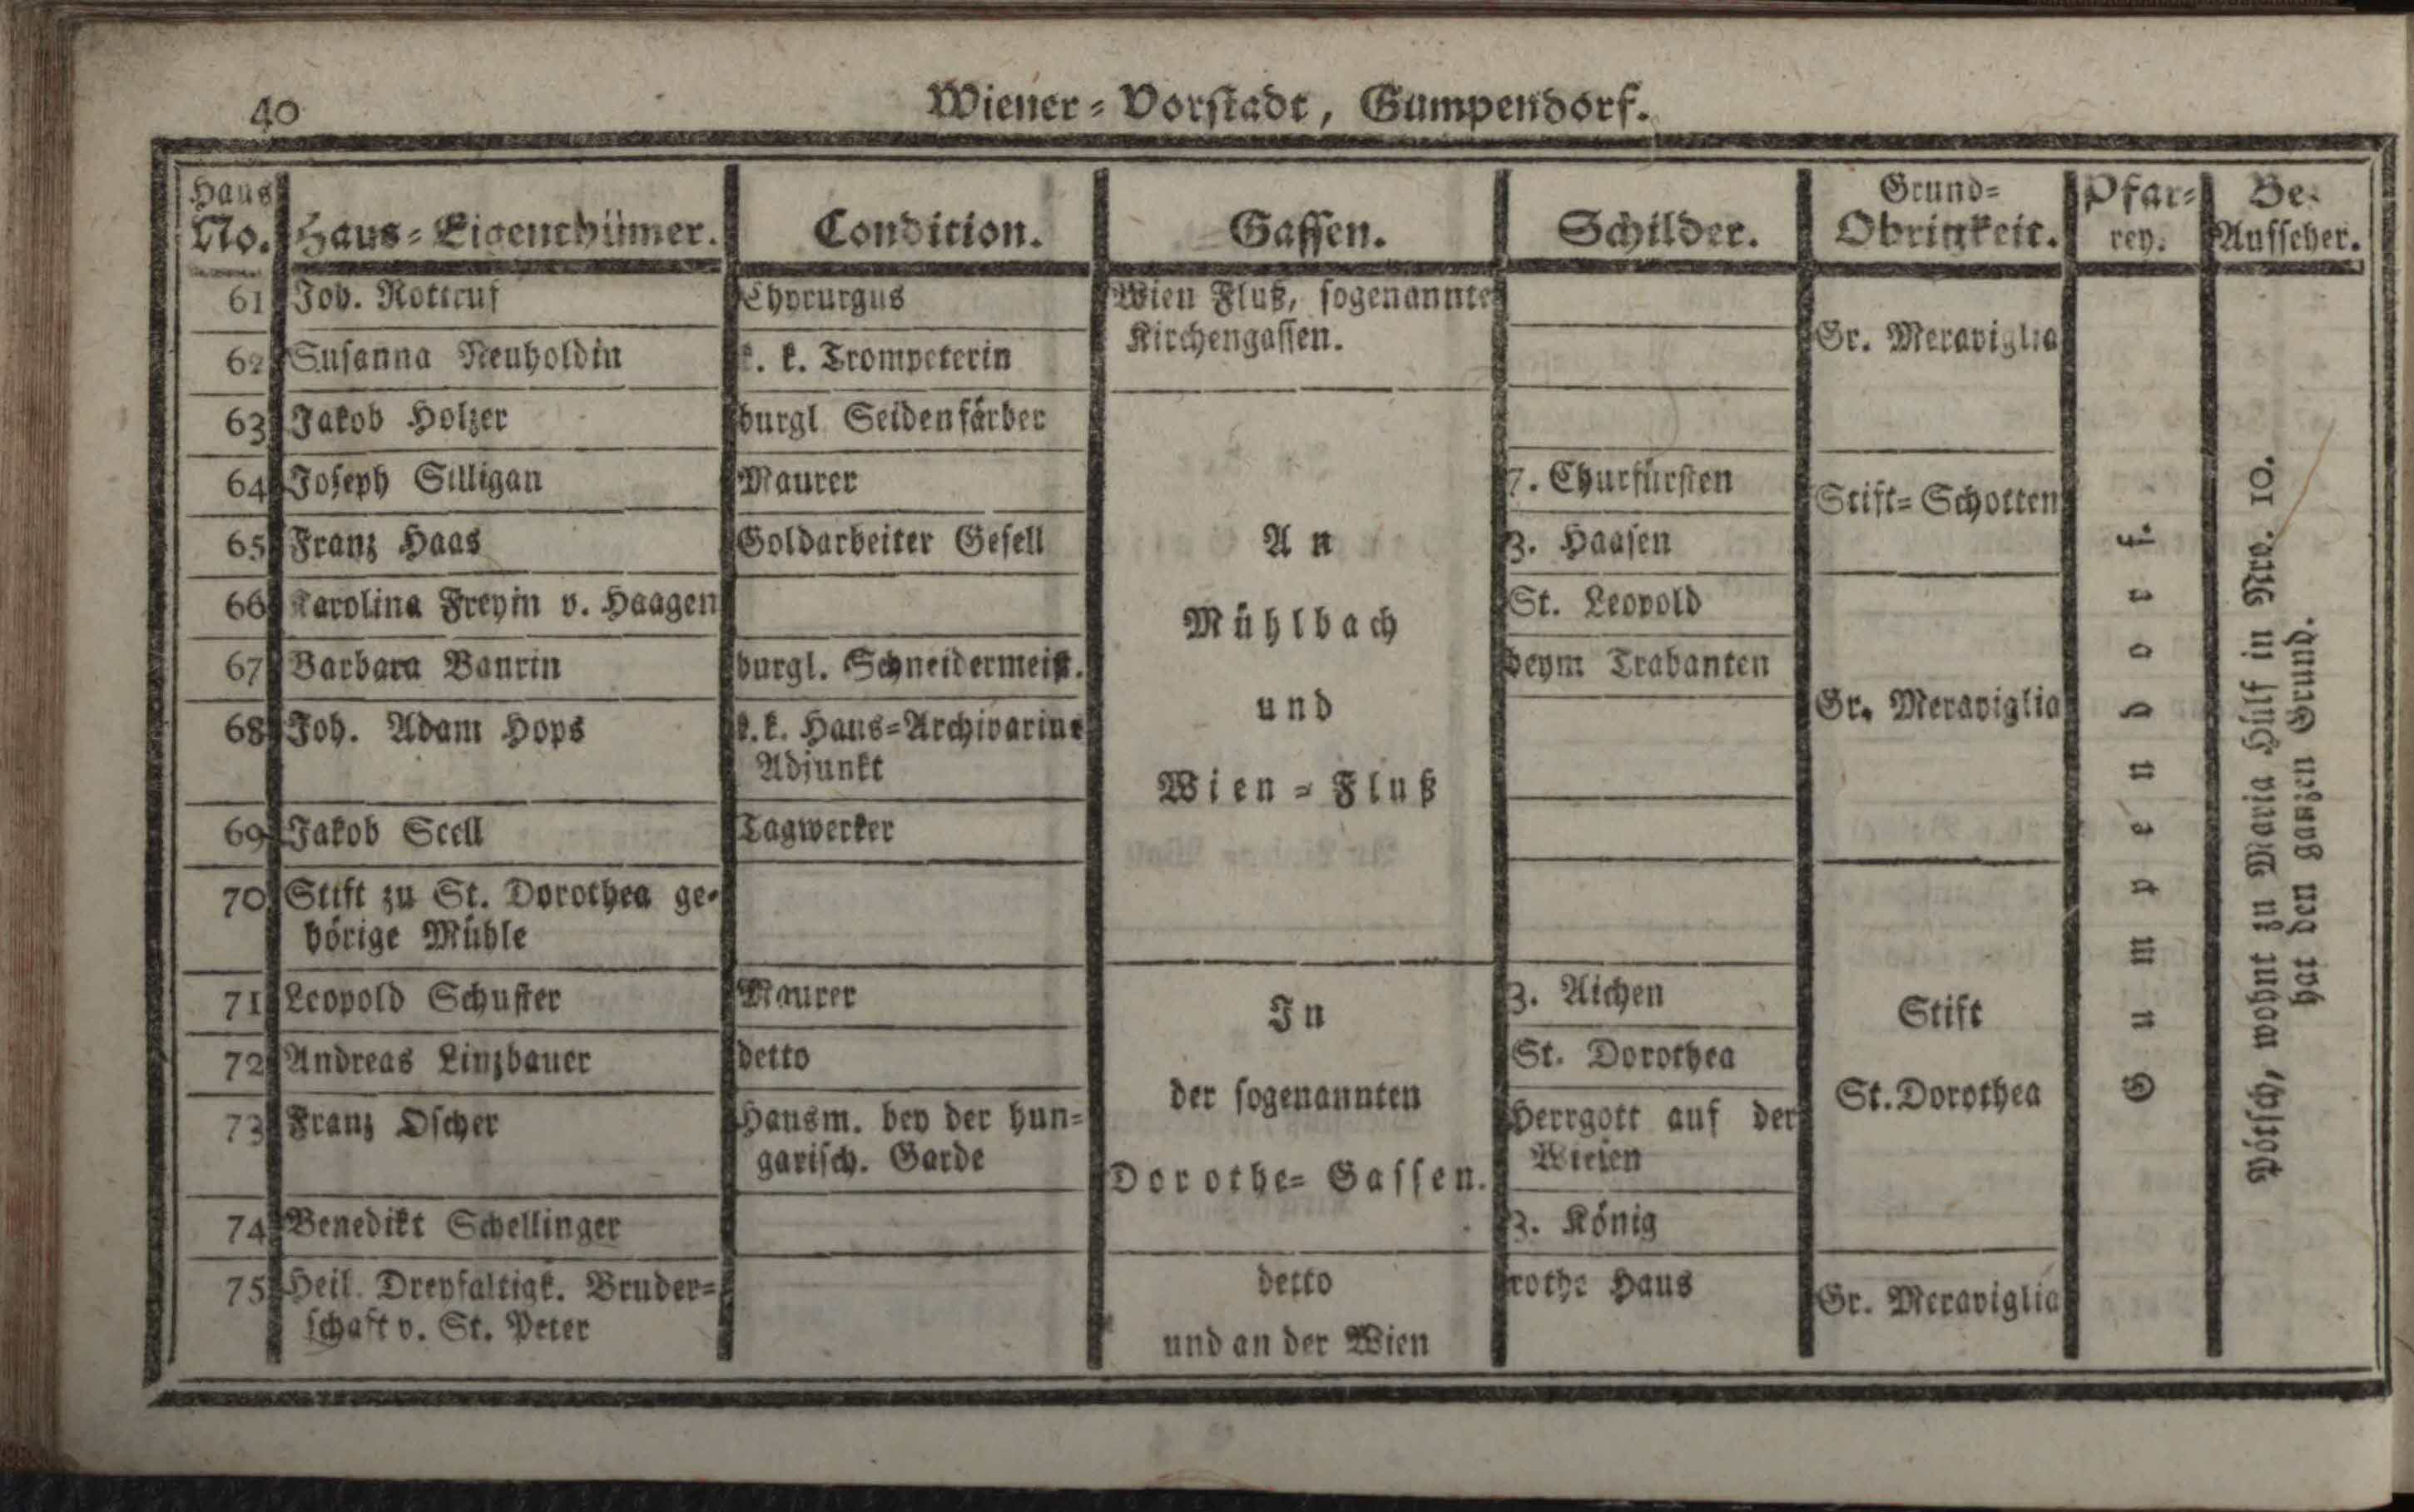 40
Wiener-Vorstadt, Gumpendorf.
Haus No. Haus-Eigenthümer. Condition. Gassen. Schilder. Grund-Obrigkeit. Pfar-rey. Be-Aufseher.
61 Joh. Rottruf Chyrurgus Wien Fluß, sogenannte
Kirchengassen. Gr. Meraviglia
62 Susanna Neuholdin k. k. Trompeterin
63 Jakob Holzer burgl. Seidenfärber
64 Joseph Silligan Maurer 7. Churfürsten
Stift-Schotten
65 Franz Haas Goldarbeiter Gesell An 3. Haasen
66 Karolina Freyin v. Haagen Mühlbach St. Leopold
67 Barbara Baurin burgl. Schneidermeist. beym Trabanten
68 Joh. Adam Hops k. k. Haus-Archivarius und Gr. Meraviglia
Adjunkt Wien-Fluß
69 Jakob Stell Tagwerker
70 Stift zu St. Dorothea ge-
hörige Mühle
71 Leopold Schuster Maurer In 3. Aichen Stift
72 Andreas Linzbauer detto der sogenannten St. Dorothea St. Dorothea
73 Franz Oscher Hausm. bey der hun- Herrgott auf der
garisch. Garde Dorothe-Gassen. Wiesen
74 Benedikt Schellinger 3. König
75 Heil. Dreyfaltigk. Bruder- detto rothe Haus Gr. Meraviglia
schaft v. St. Peter und an der Wien
Gumpendorf.
Pötsch, wohnt zu Maria Hülf in Nro. 10.
hat den ganzen Grund.